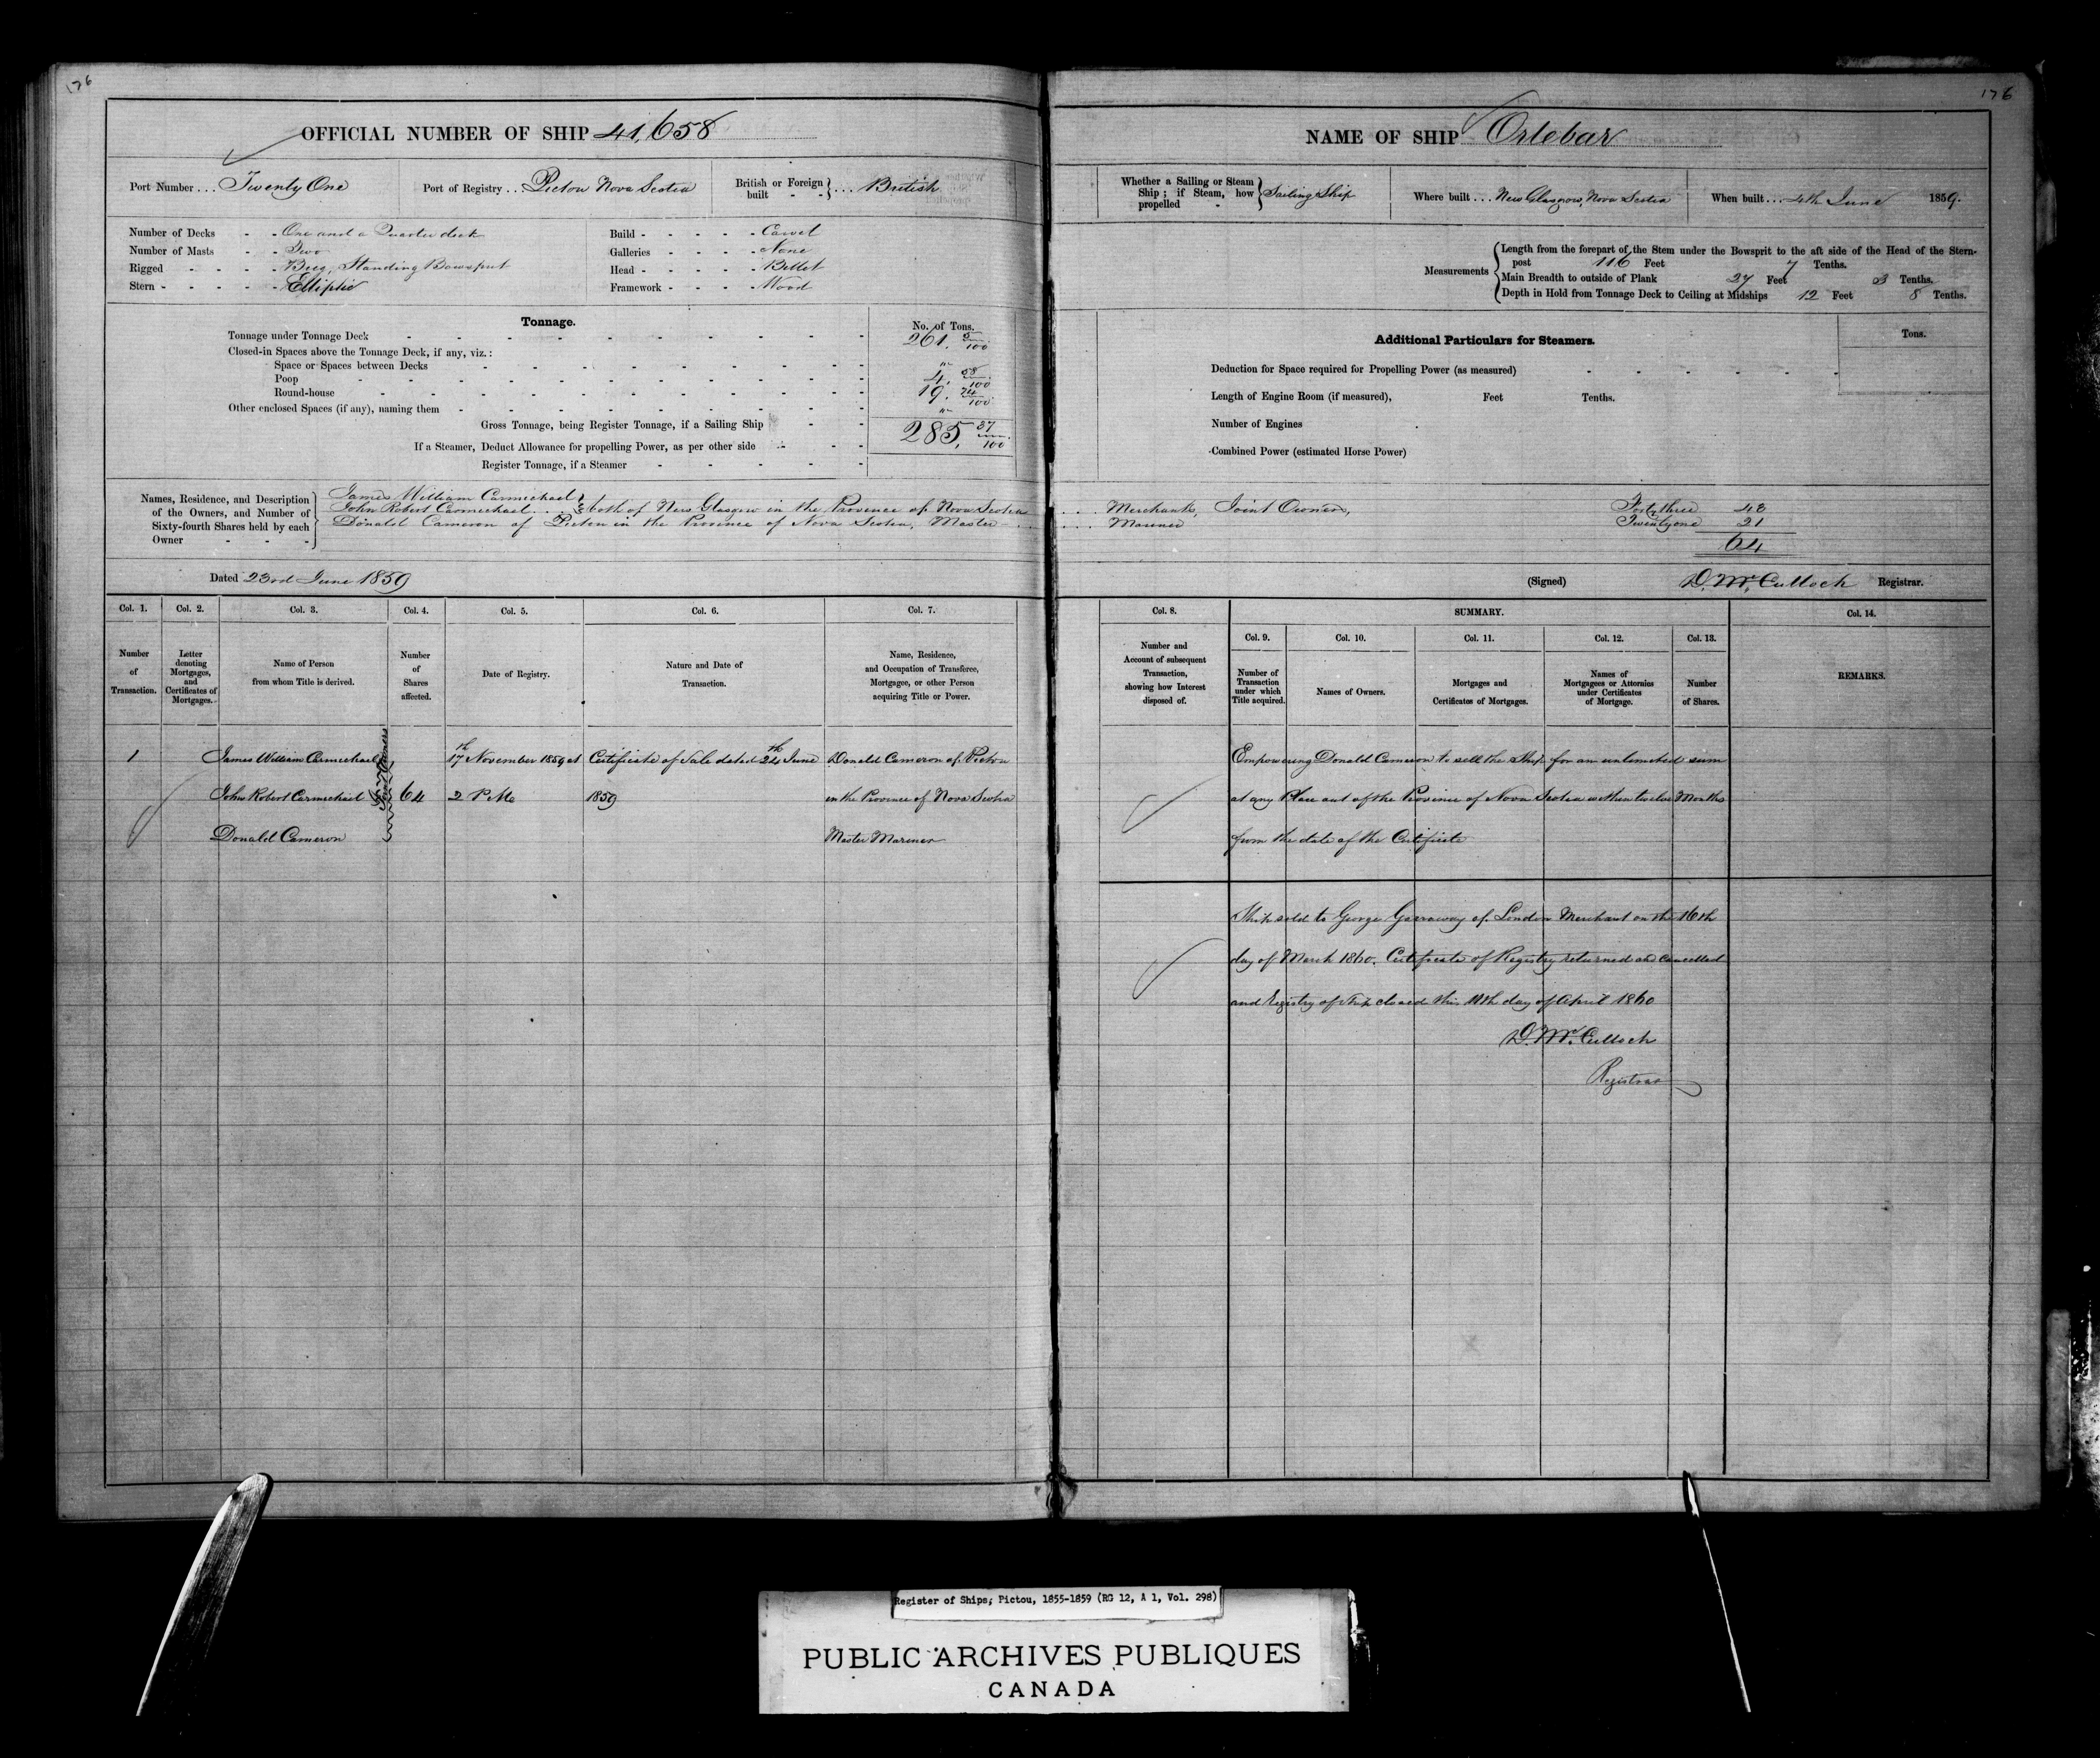 176
176
OFFICIAL NUMBER OF SHIP 41,658
Port Number ... Twenty One Port of Registry ... Pictou Nova Scotia British or Foreign built - - } .... British
Number of Decks - - One and a Quarter deck
Number of Masts - - Two
Rigged - - - - Brig, Standing Bowsprit
Stern - - - - - Elliptic
Build - - - - - Carvel
Galleries - - - - None
Head - - - - - Billet
Framework - - - - Wood
Tonnage. No. of Tons.
Tonnage under Tonnage Deck 261. 5/100
Closed-in Spaces above the Tonnage Deck, if any, viz.:
Space or Spaces between Decks "
Poop 4. 58/100
Round-house 19. 74/100
Other enclosed Spaces (if any), naming them "
Gross Tonnage, being Register Tonnage, if a Sailing Ship 285, 37/100
If a Steamer, Deduct Allowance for propelling Power, as per other side
Register Tonnage, if a Steamer
NAME OF SHIP Orlebar
Whether a Sailing or Steam Ship; if Steam, how propelled - } Sailing Ship Where built ... New Glasgow, Nova Scotia When built ... 4th June 1859.
Measurements
Length from the forepart of the Stem under the Bowsprit to the aft side of the Head of the Stern-
post 116 Feet 7 Tenths.
Main Breadth to outside of Plank 27 Feet 3 Tenths.
Depth in Hold from Tonnage Deck to Ceiling at Midships 12 Feet 8 Tenths.
Additional Particulars for Steamers. Tons.
Deduction for Space required for Propelling Power (as measured)
Length of Engine Room (if measured), Feet Tenths.
Number of Engines
Combined Power (estimated Horse Power)
Names, Residence, and Description of the Owners, and Number of Sixty-fourth Shares held by each Owner - - -
James William Carmichael &
John Robert Carmichael .... both of New Glasgow in the Province of Nova Scotia .... Merchants, Joint Owners, Forty three 43
Donald Cameron of Pictou in the Province of Nova Scotia, Master .... Mariner Twenty one 21
64
Dated 23rd June 1859 (Signed) D. McCulloch Registrar.
Col. 1. Col. 2. Col. 3. Col. 4. Col. 5. Col. 6. Col. 7.
Number of Transaction.
Letter denoting Mortgages, and Certificates of Mortgages.
Name of Person from whom Title is derived.
Number of Shares affected.
Date of Registry.
Nature and Date of Transaction.
Name, Residence, and Occupation of Transferee, Mortgagee, or other Person acquiring Title or Power.
Col. 8. SUMMARY. Col. 14.
Col. 9. Col. 10. Col. 11. Col. 12. Col. 13.
Number and Account of subsequent Transaction, showing how Interest disposed of.
Number of Transaction under which Title acquired.
Names of Owners.
Mortgages and Certificates of Mortgages.
Names of Mortgagees or Attornies under Certificates of Mortgage.
Number of Shares.
REMARKS.
1 James William Carmichael 17th November 1859 at Certificate of Sale dated 24th June Donald Cameron of Pictou
John Robert Carmichael 64 2 P.M. 1859 in the Province of Nova Scotia
Donald Cameron Master Mariner
Joint Owners
Empowering Donald Cameron to sell the Ship for an unlimited sum
at any Place out of the Province of Nova Scotia within twelve Months
from the date of the Certificate
Ship sold to George Garraway of London Merchant on the 16th
day of March 1860. Certificate of Registry returned and cancelled
and Registry of Ship closed this 11th day of April 1860
D. McCulloch
Registrar
Register of Ships; Pictou, 1855-1859 (RG 12, A 1, Vol. 298)
PUBLIC ARCHIVES PUBLIQUES
CANADA